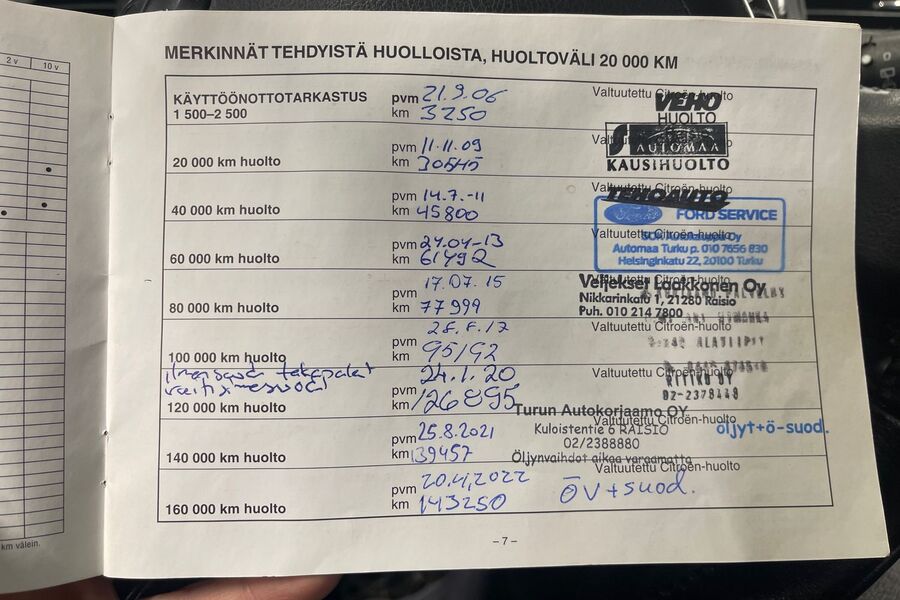 2 v 10 v
MERKINNÄT TEHDYISTÄ HUOLLOISTA, HUOLTOVÄLI 20 000 KM
KÄYTTÖÖNOTTOTARKASTUS
1 500–2 500
pvm 21.9.06
km 3250
Valtuutettu Citroën-huolto
VEHO
HUOLTO
20 000 km huolto
pvm 11.11.09
km 30545
Valtuutettu Citroën-huolto
AUTOMAA
KAUSIHUOLTO
40 000 km huolto
pvm 14.7.-11
km 45800
Valtuutettu Citroën-huolto
TEHOAUTO
Ford FORD SERVICE
60 000 km huolto
pvm 24.04-13
km 61492
Valtuutettu Citroën-huolto
Automaa Turku p. 010 7656 830
Helsinginkatu 22, 20100 Turku
80 000 km huolto
pvm 17.07.15
km 77999
Veljekset Laakkonen Oy
Nikkarinkatu 1, 21280 Raisio
Puh. 010 214 7800
100 000 km huolto
pvm
km 95192
Valtuutettu Citroën-huolto
120 000 km huolto
pvm 24.1.20
km 126895
Valtuutettu Citroën-huolto
02-2378448
140 000 km huolto
pvm 25.8.2021
km 139457
Turun Autokorjaamo OY
Kuloistentie 6 RAISIO
02/2388880
Öljynvaihdot aikaa varaamatta
Valtuutettu Citroën-huolto
öljyt+ö-suod.
160 000 km huolto
pvm 20.4.2022
km 143250
Valtuutettu Citroën-huolto
öv+suod.
– 7 –
km välein.